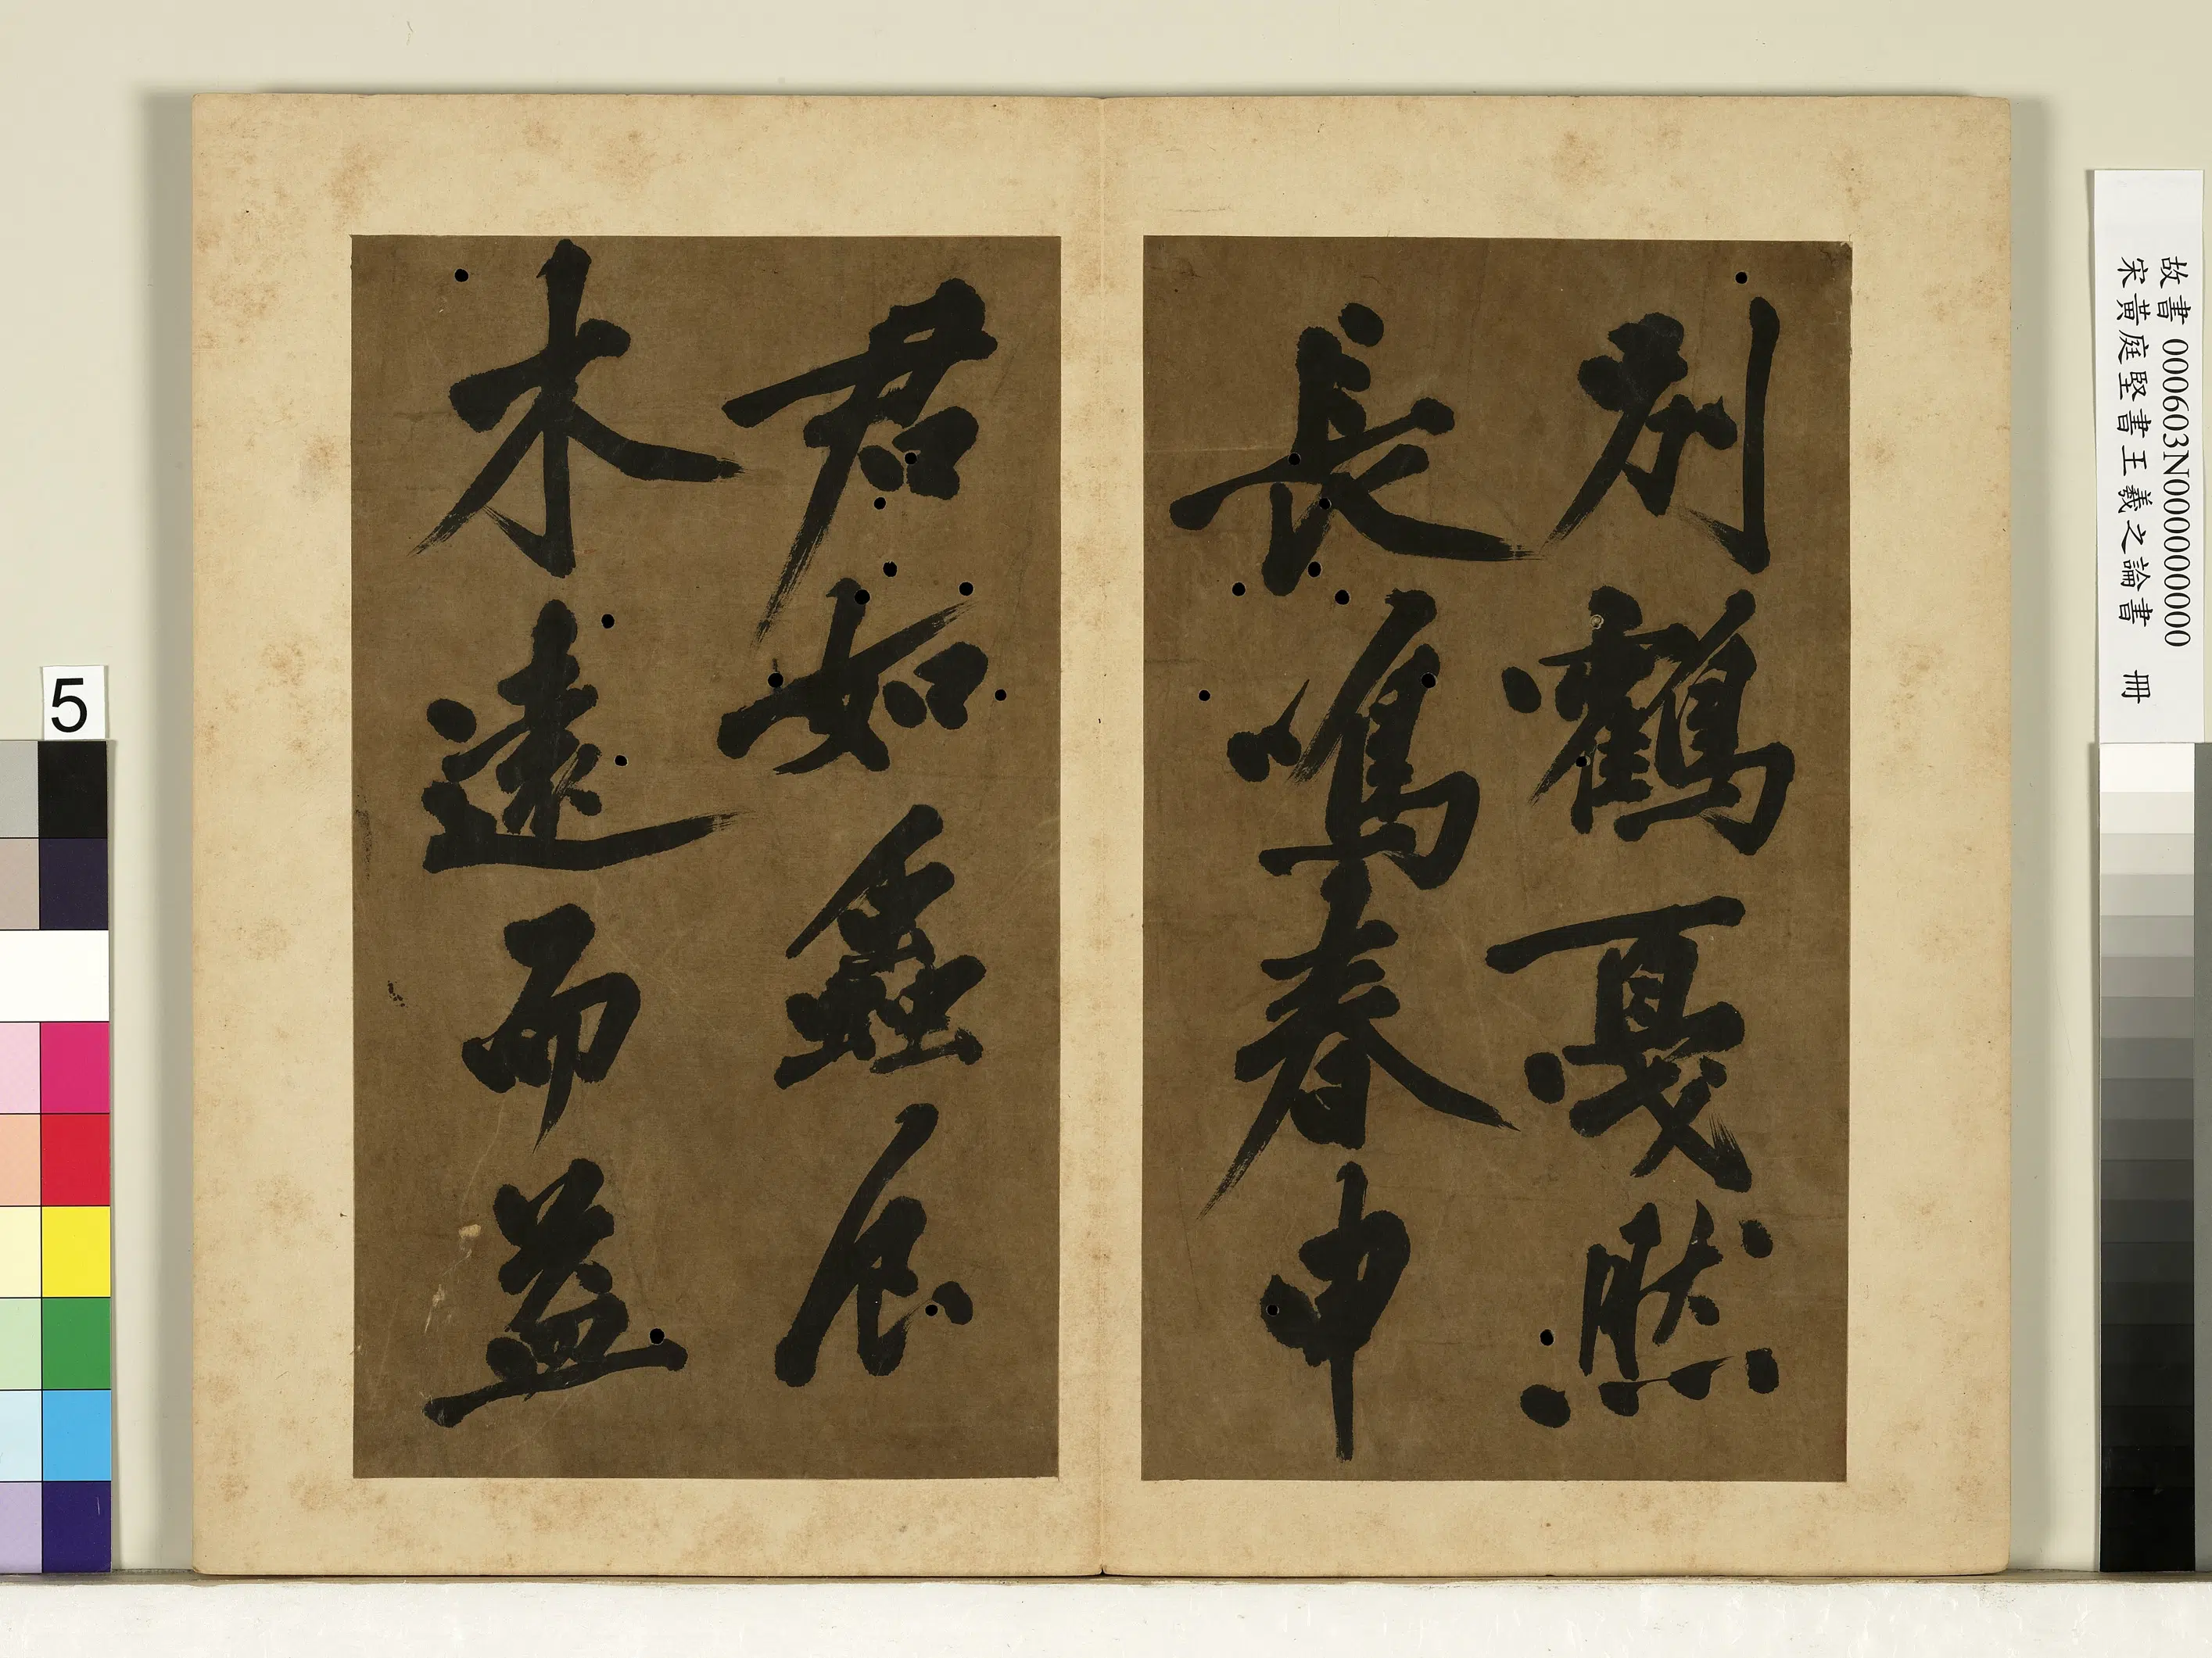 別鶴戛然
長鳴春申
君如蠡谷
木遠而益
5
故書 000603N000000000
宋黃庭堅書王羲之論書 冊